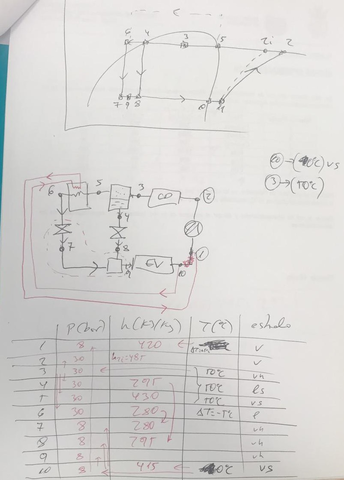 6 4 3 5 2i 2
7 9 8 10 1
6 5 3 CD 2
4
7 8 9 EV 10 1
10 → 0ºC vs
3 → 70ºC
P(bar) h(KJ/Kg) T(ºC) estado
1 8 420 v
2 30 v
3 30 70ºC vh
4 30 295 70ºC ls
5 30 430 70ºC vs
6 30 280 l
7 8 280 vh
8 8 295 vh
9 8 vh
10 8 415 0ºC vs